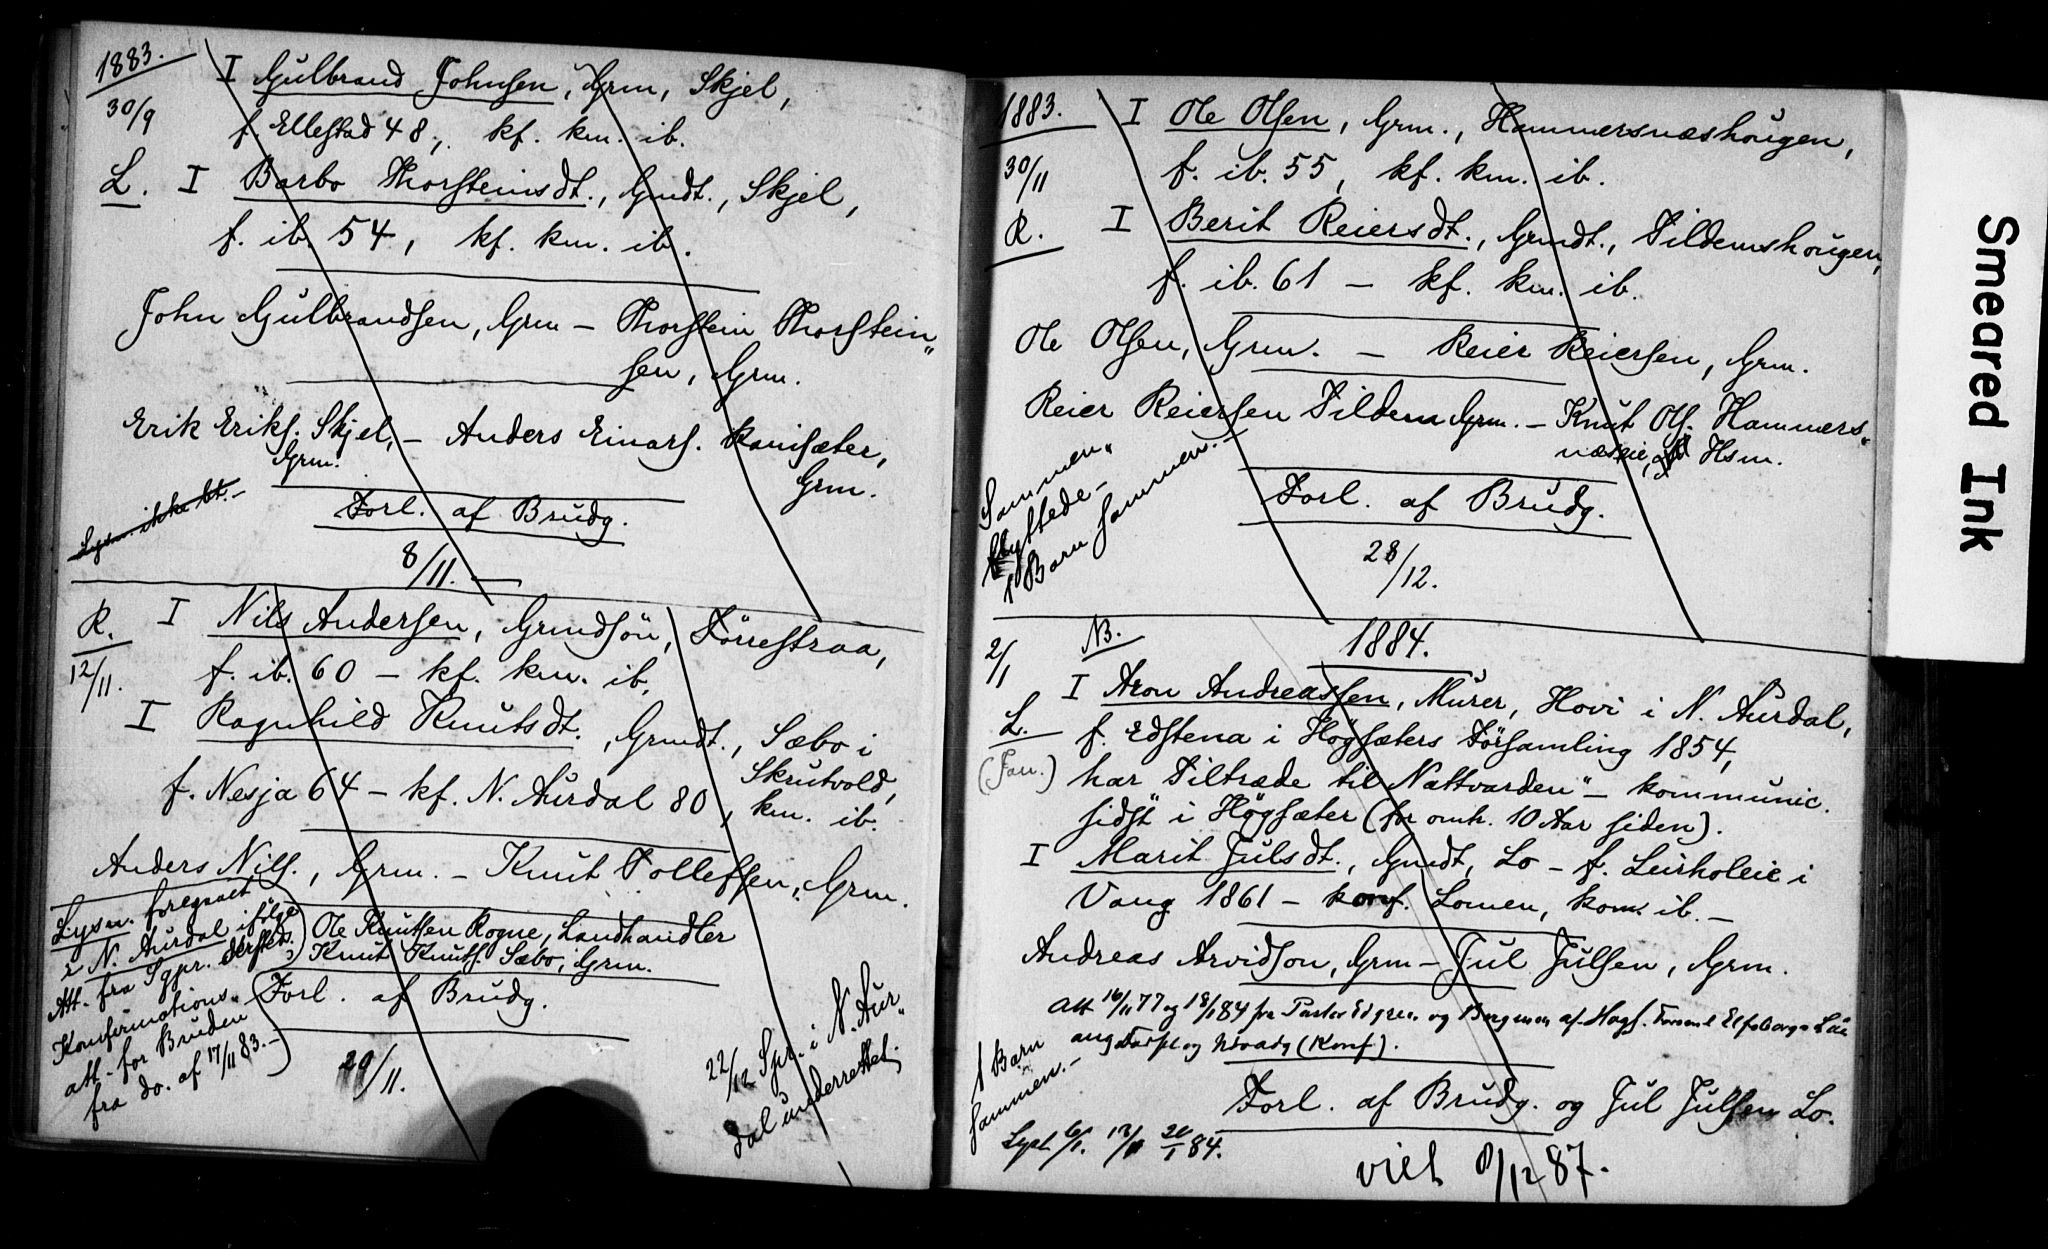 1883.
I Gulbrand Johnsen, Grm, Skjel,
30/9
f. Ellestad 48, kf. km. ib.
L. I Barbo Thorsteinsdt., Gmdt., Skjel,
f. ib. 54, kf. km. ib.
John Gulbrandsen, Grm – Thorstein Thorstein„
sen, Grm.
Erik Eriks. Skjel, – Anders Einars. Ranisæter,
Grm.
Grm.
Lysn. ikke bt. –
Forl. af Brudg.
8/11. –
R. I Nils Andersen, Grmdsön, Förrestraa,
12/11.
f. ib. 60 – kf. km. ib.
I Ragnhild Knutsdt., Grmdt., Sæbo i
Skrutvold,
f. Nesja 64 – kf. N. Aurdal 80, km. ib.
Anders Nils., Grm. – Knut Tollefsen, Grm.
Lysn. foregaaet
i N. Aurdal ifölge
Att. fra Sgpr. dersteds.
Konfirmations„
att. for Bruden
fra do. af 17/11 83. –
Ole Knutsen Rogne, Landhandler
Knut Knuts. Sæbo, Grm.
Forl. af Brudg.
20/11.
22/12 Spr. i N. Aur„
dal underrettet.
1883. I Ole Olsen, Grm., Hammersnæshougen,
30/11
f. ib. 55, kf. km. ib.
R. I Berit Reiersdt., Grmdt., Tildemshougen,
f. ib. 61 – kf. km. ib.
Ole Olsen, Grm. – Reier Reiersen, Grm.
Reier Reiersen Tildem Grm. – Knut Ols. Hammers„
næseie, Hsm.
Sammen„
flyttede –
1 Barn sammen. –
Forl. af Brudg.
28/12.
2/1 NB. 1884.
I Aron Andreassen, Murer, Hovi i N. Aurdal,
L.
f. Edstena i Högsæters Församling 1854,
(Fan.) har "Tiltræde til Nattvarden" – kommunic.
sidst i Högsæter (for omtr. 10 Aar siden).
I Marit Julsdt., Gmdt, Lo – f. Leirholeie i
Vang 1861 – konf. Lomen, kom. ib. –
Andreas Arvidson, Grm – Jul Julsen, Grm.
Att 16/11 77 og 18/1 84 fra Pastor Edgren og Bergman af Högs.
og (Konf).
1 Barn
sammen. –
Forl. af Brudg. og Jul Julsen Lo.
Lyst 6/1. 13/1 20/1 84.
viet 8/12 87.
Smeared Ink